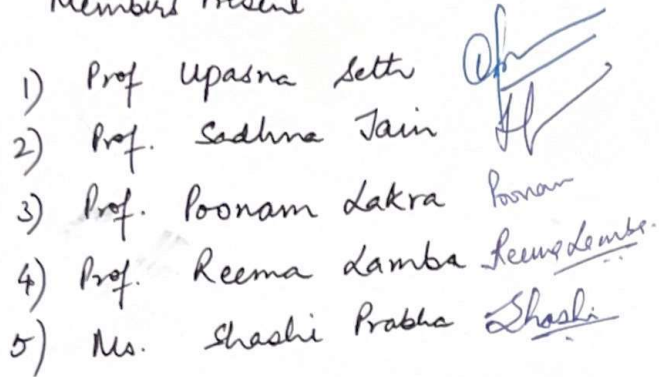 Members Present
1) Prof Upasna Seth
2) Prof. Sadhna Jain
3) Prof. Poonam Lakra Poonam
4) Prof. Reema Lamba Reema Lamba.
5) Ms. Shashi Prabha Shashi